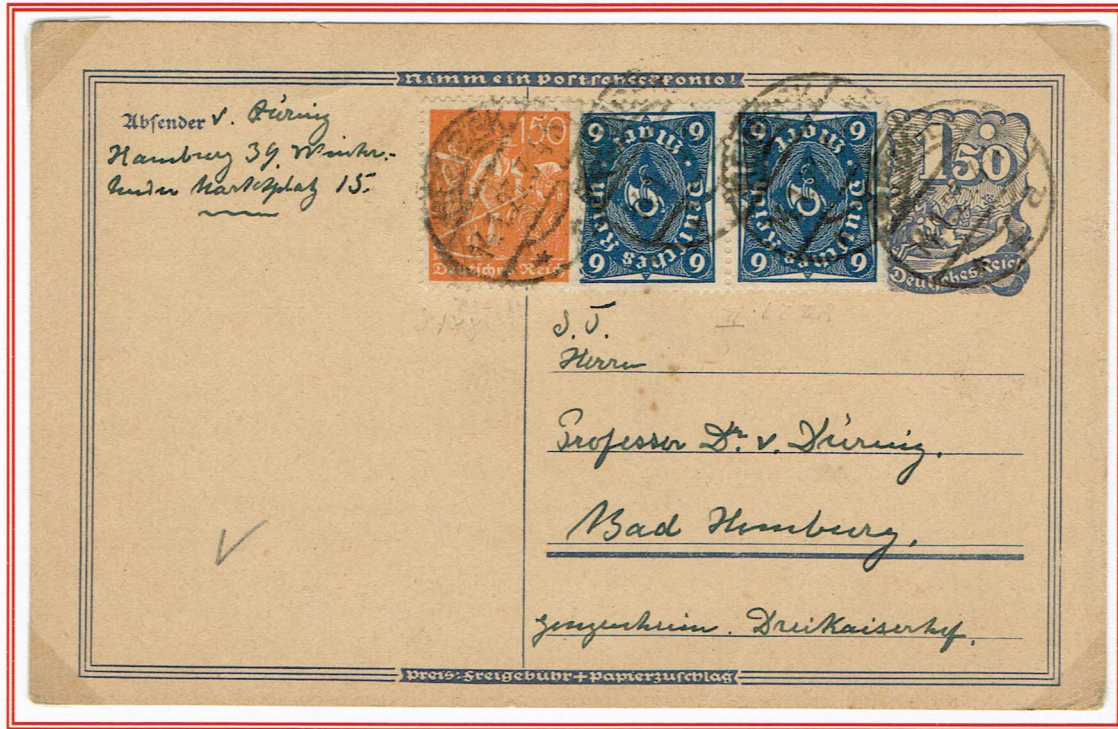 Nimm ein Postscheckkonto!
Absender v. Düring
Hamburg 39. Winter-
huder Marktplatz 15.
150
Deutsches Reich
6 6
Mark
Deutsches Reich
6
6 6
6 6
Mark
Deutsches Reich
6
6 6
1.50
Deutsches Reich
S. T.
Herrn
Professor Dr. v. Düring.
Bad Homburg.
Gonzenheim. Dreikaiserhof.
Preis: Freigebühr + Papierzuschlag